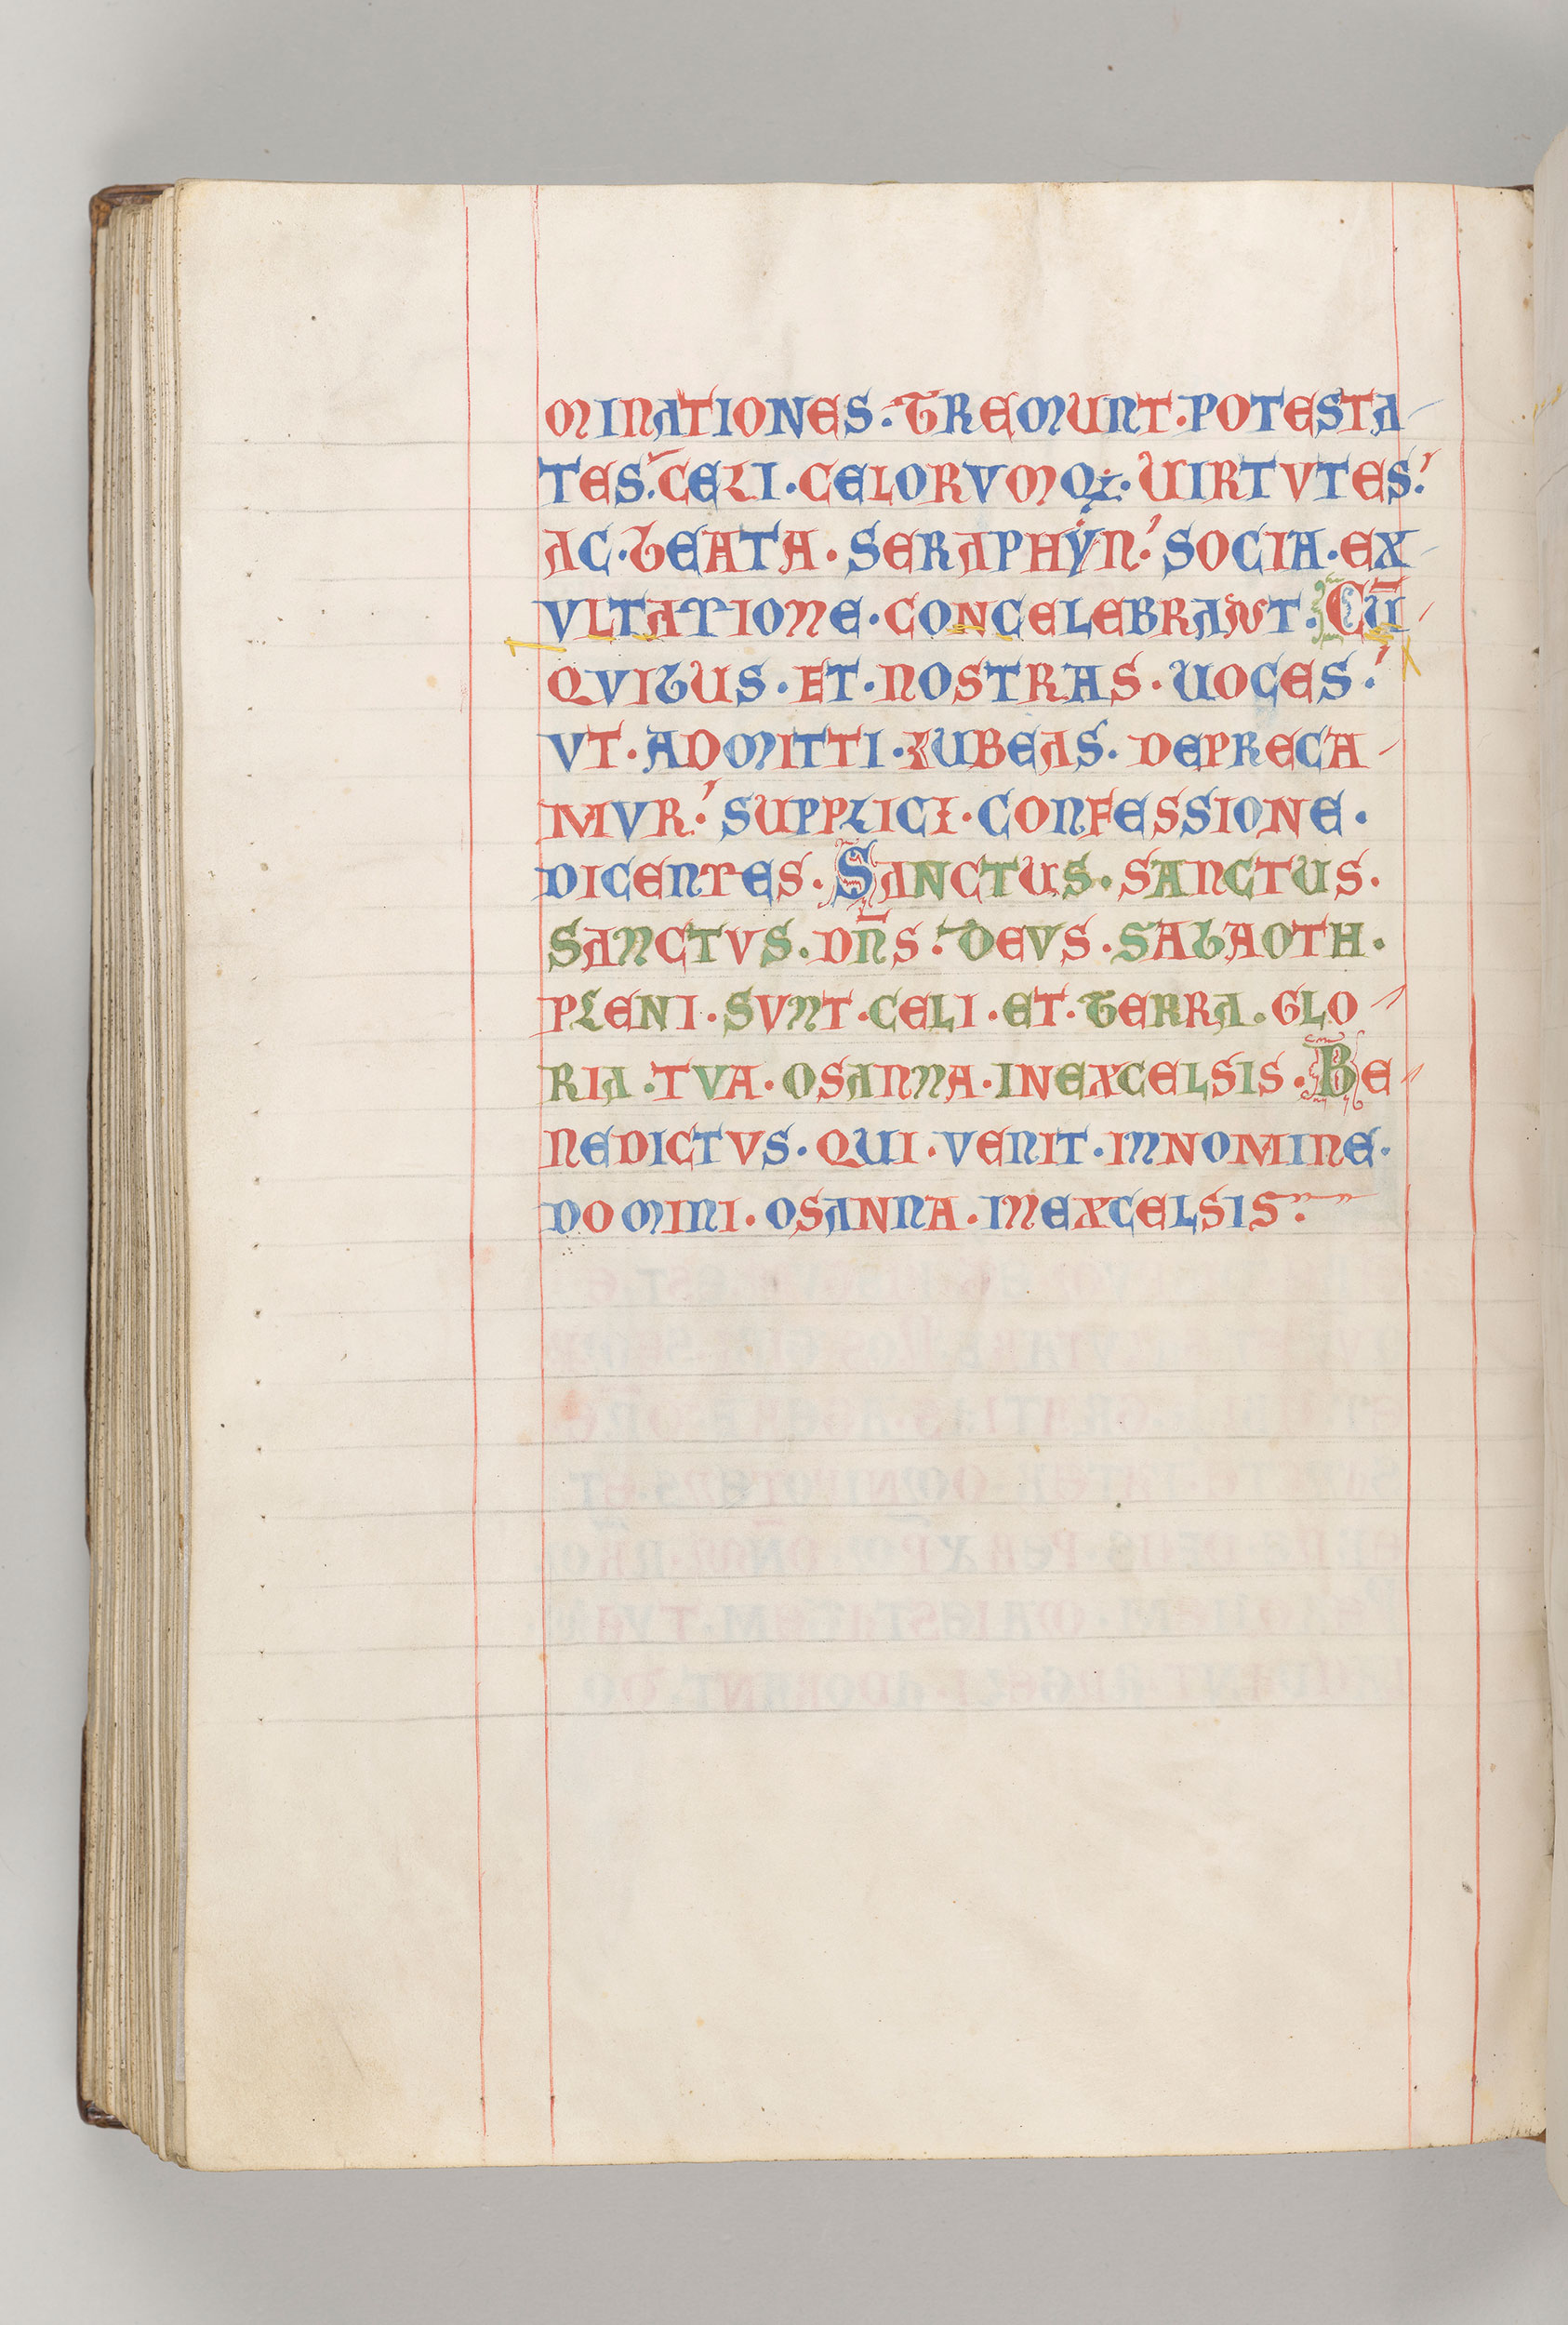 MINATIONES·TREMUNT·POTESTA-
TES.CELI·CELORVMQꝫ·UIRTVTES.
AC·BEATA·SERAPHẎN.SOCIA·EX
VLTATIONE·CONCELEBRANT.CŪ
QVIBUS·ET·NOSTRAS·UOCES.
VT·ADMITTI·IUBEAS·DEPRECA-
MVR.SUPPLICI·CONFESSIONE·
DICENTES·SANCTUS·SANCTUS·
SANCTVS·DN̄S·DEVS·SABAOTH·
PLENI·SVNT·CELI·ET·TERRA·GLO-
RIA·TVA·OSANNA·INEXCELSIS·BE-
NEDICTVS·QUI·VENIT·INNOMINE·
DOMINI·OSANNA·INEXCELSIS·